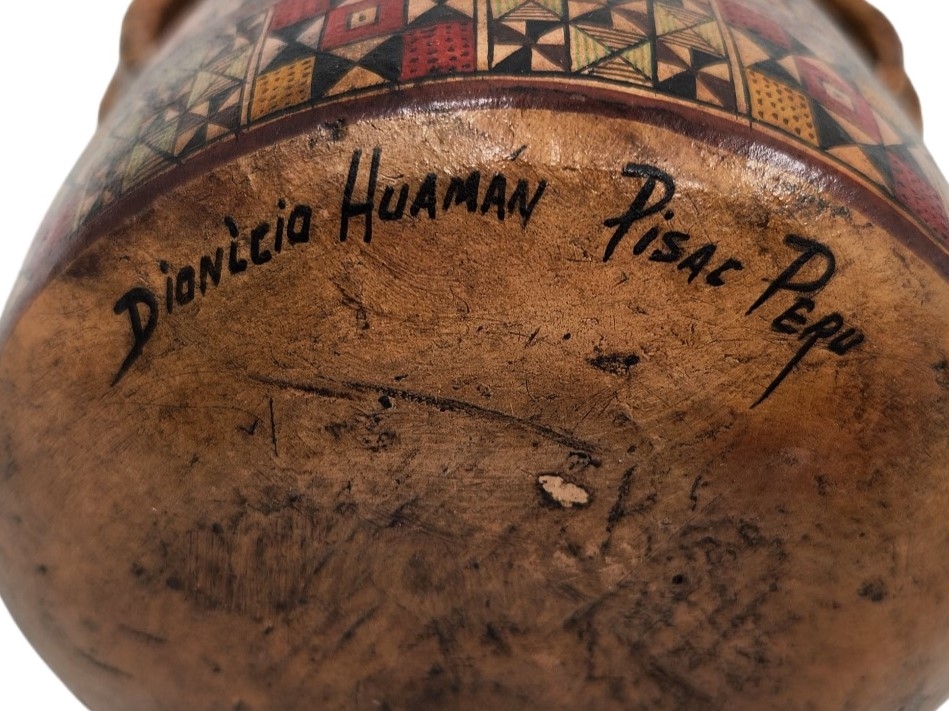 Dionìcio Huamán Pisac Peru